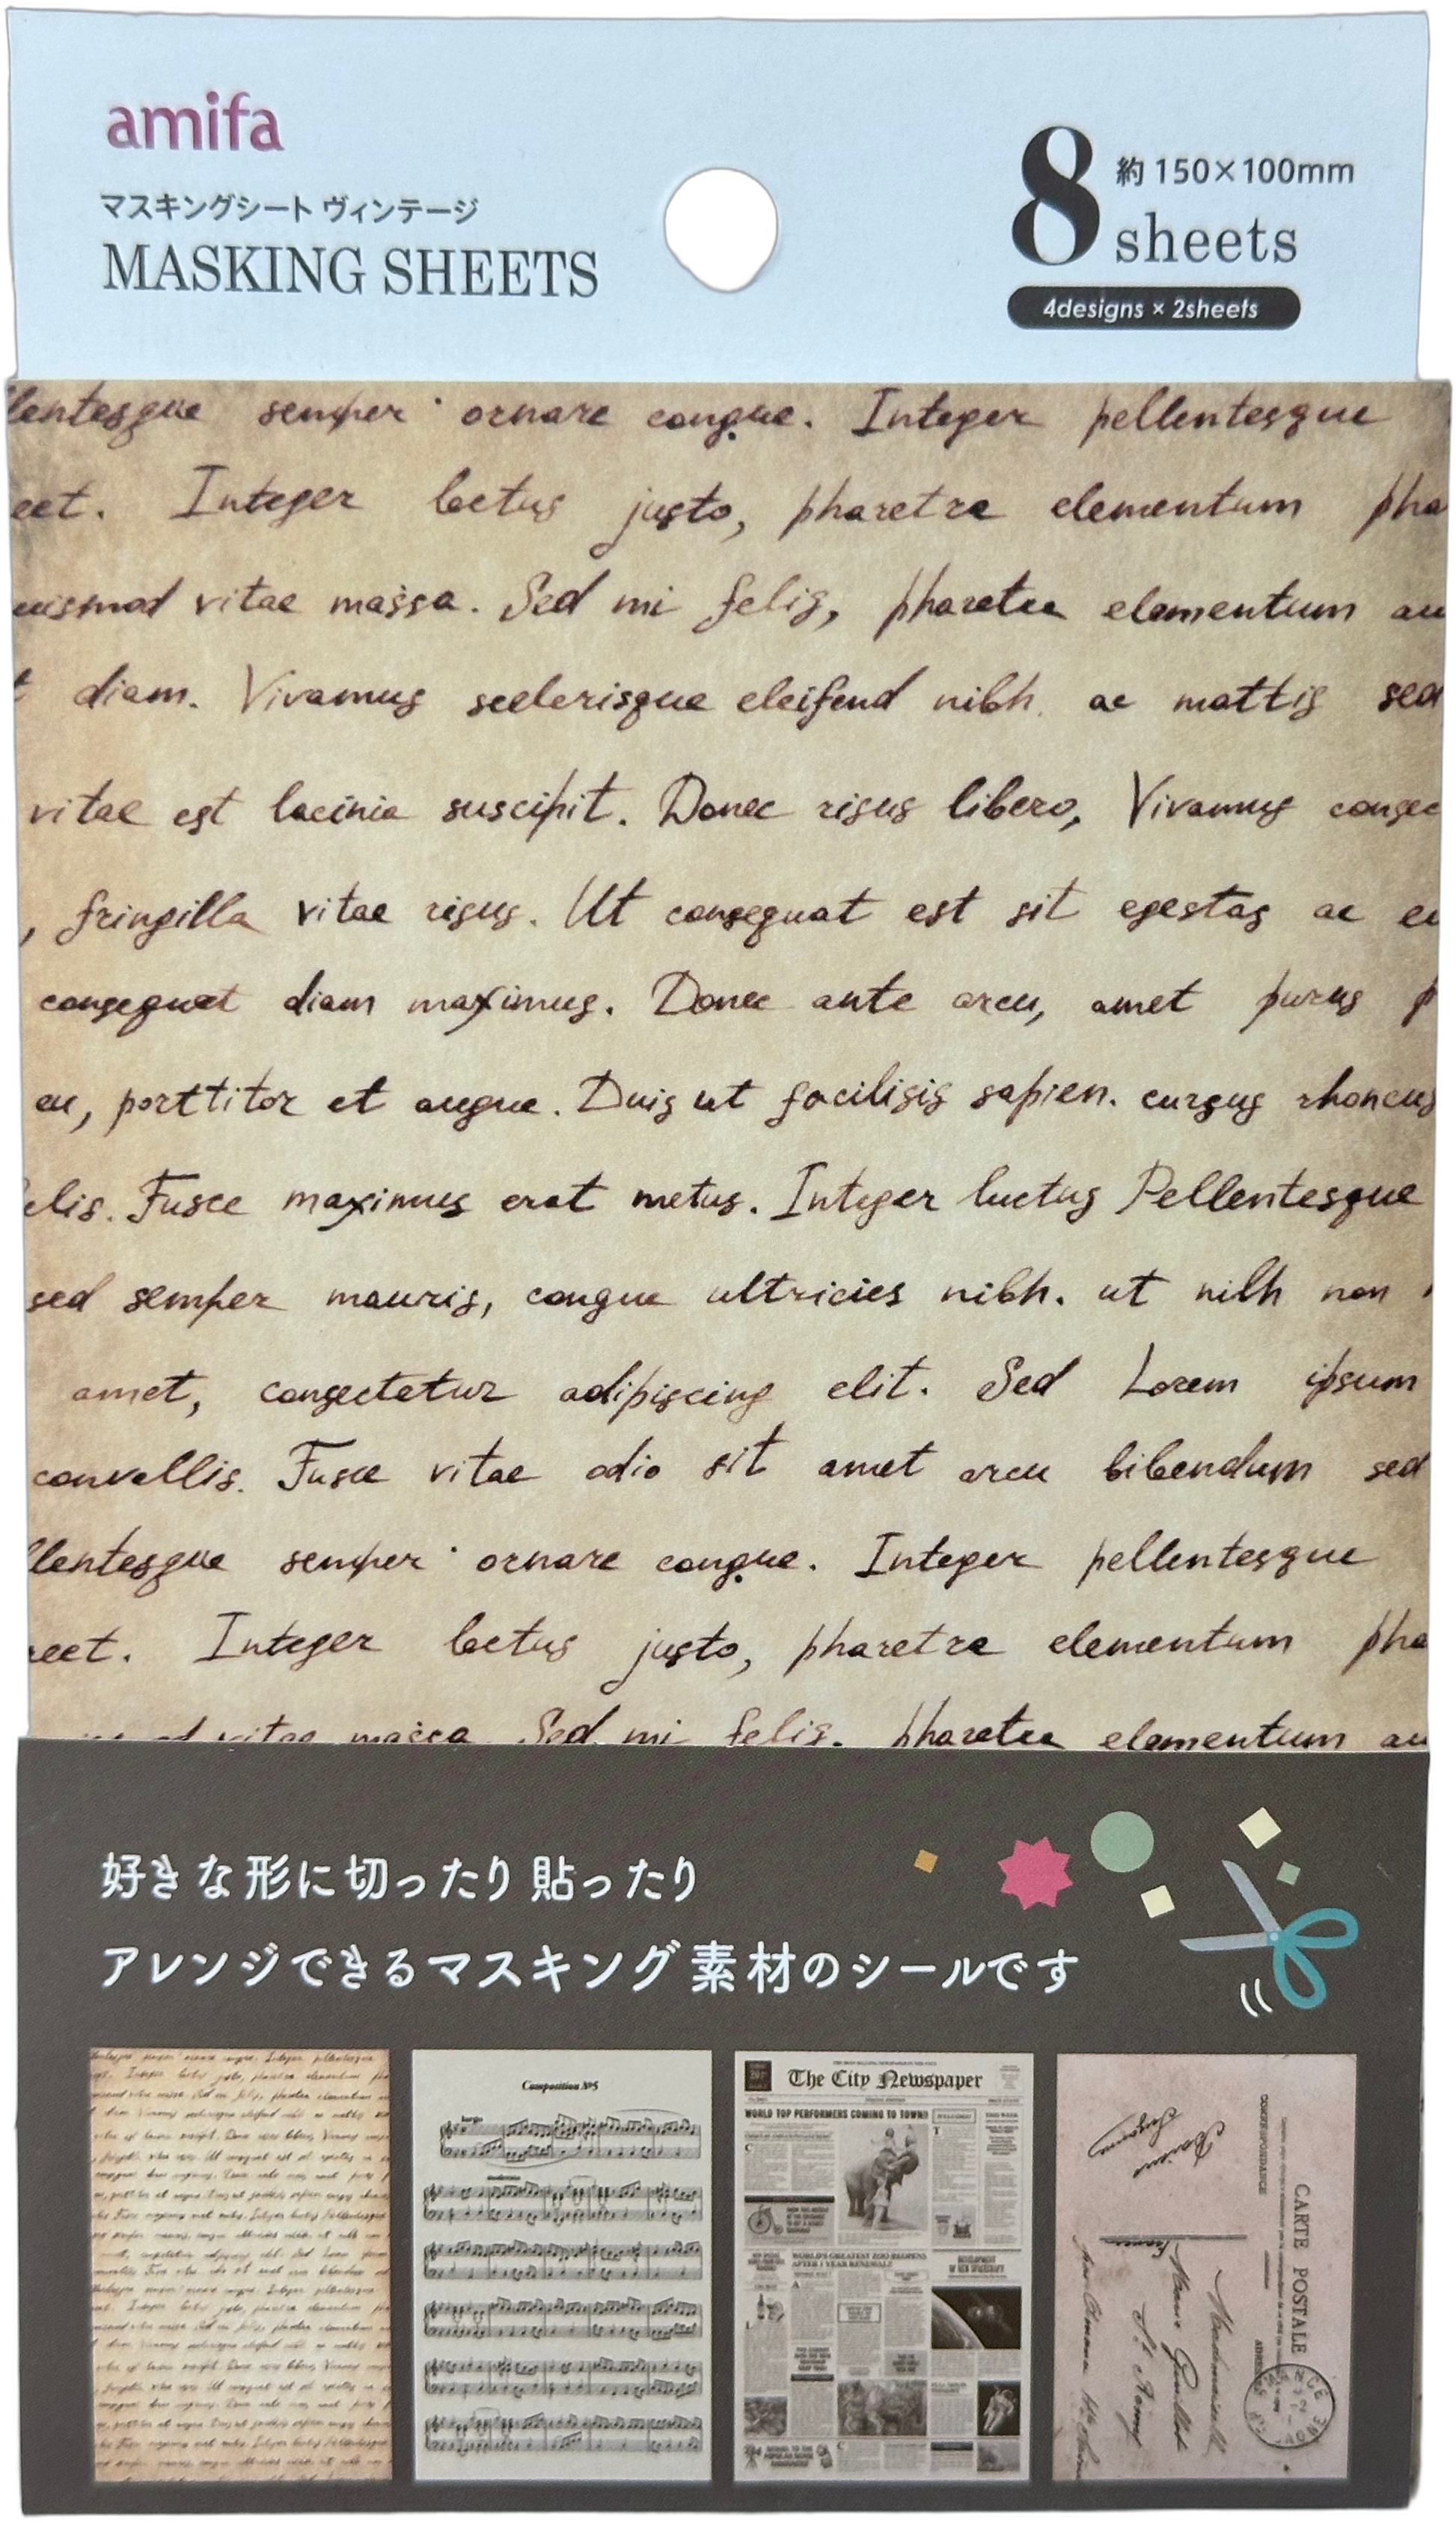 amifa
マスキングシート ヴィンテージ
MASKING SHEETS
8 sheets
約 150×100mm
4designs × 2sheets
llentesque semper ornare congue. Integer pellentesque
eet. Integer loctus justo, pharetra elementum pha
uismod vitae massa. Sed mi felis, pharetra elementum au
t diam. Vivamus scelerisque eleifend nibh. ac mattis sed
vitae est lacinia suscipit. Donec risus libero, Vivamus consec
, fringilla vitae risus. Ut consequat est sit egestas ac eu
consequat diam maximus. Donec ante arcu, amet purus p
eu, porttitor et augue. Duis ut facilisis sapien. cursus rhoncus
elis. Fusce maximus erat metus. Integer luctus Pellentesque
sed semper mauris, congue ultricies nibh. ut nibh non
amet, consectetur adipiscing elit. Sed Lorem ipsum
convallis. Fusce vitae odio sit amet arcu bibendum sed
llentesque semper ornare congue. Integer pellentesque
reet. Integer loctus justo, pharetra elementum pha
vitae massa Sed mi felis. pharetra elementum au
好きな形に切ったり 貼ったり
アレンジできるマスキング素材のシールです
Composition №5
The City Newspaper
WORLD TOP PERFORMERS COMING TO TOWN!!
WORLD'S GREATEST ZOO REOPENS
AFTER 1 YEAR RENEWAL!
DEVELOPMENT
OF NEW SPACECRAFT
CARTE POSTALE
CORRESPONDANCE